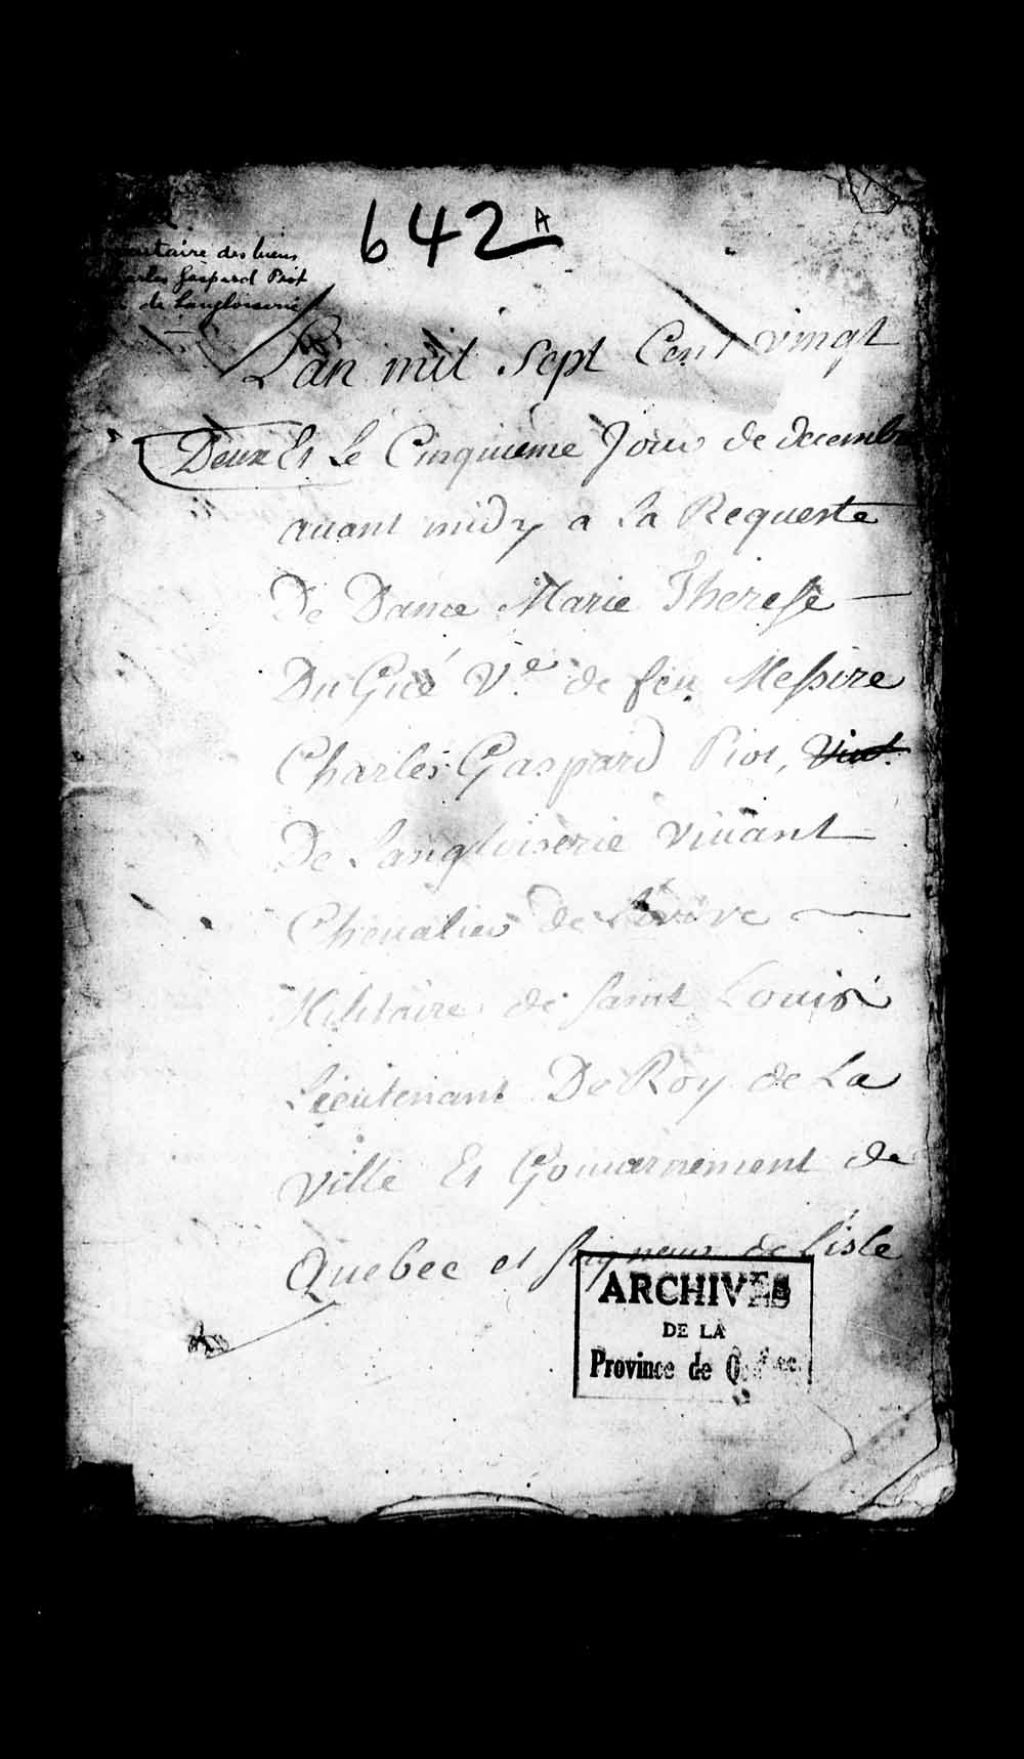 642 A
des biens
Gaspard Piot
de Langloiserie
Lan mil Sept Cent vingt
Deux Et Le Cinquieme Jour de decembre
auant midy a La Requeste
De Dame Marie Therese
Du Gué V.e de feu Messire
Charles Gaspard Piot,
De Langloiserie viuant
Cheualier de L'ordre
Militaire de Saint Louis
Lieutenant De Roy de La
Ville Et Gouuernement de
Quebec et seigneur de Lisle
ARCHIVES
DE LA
Province de Québec